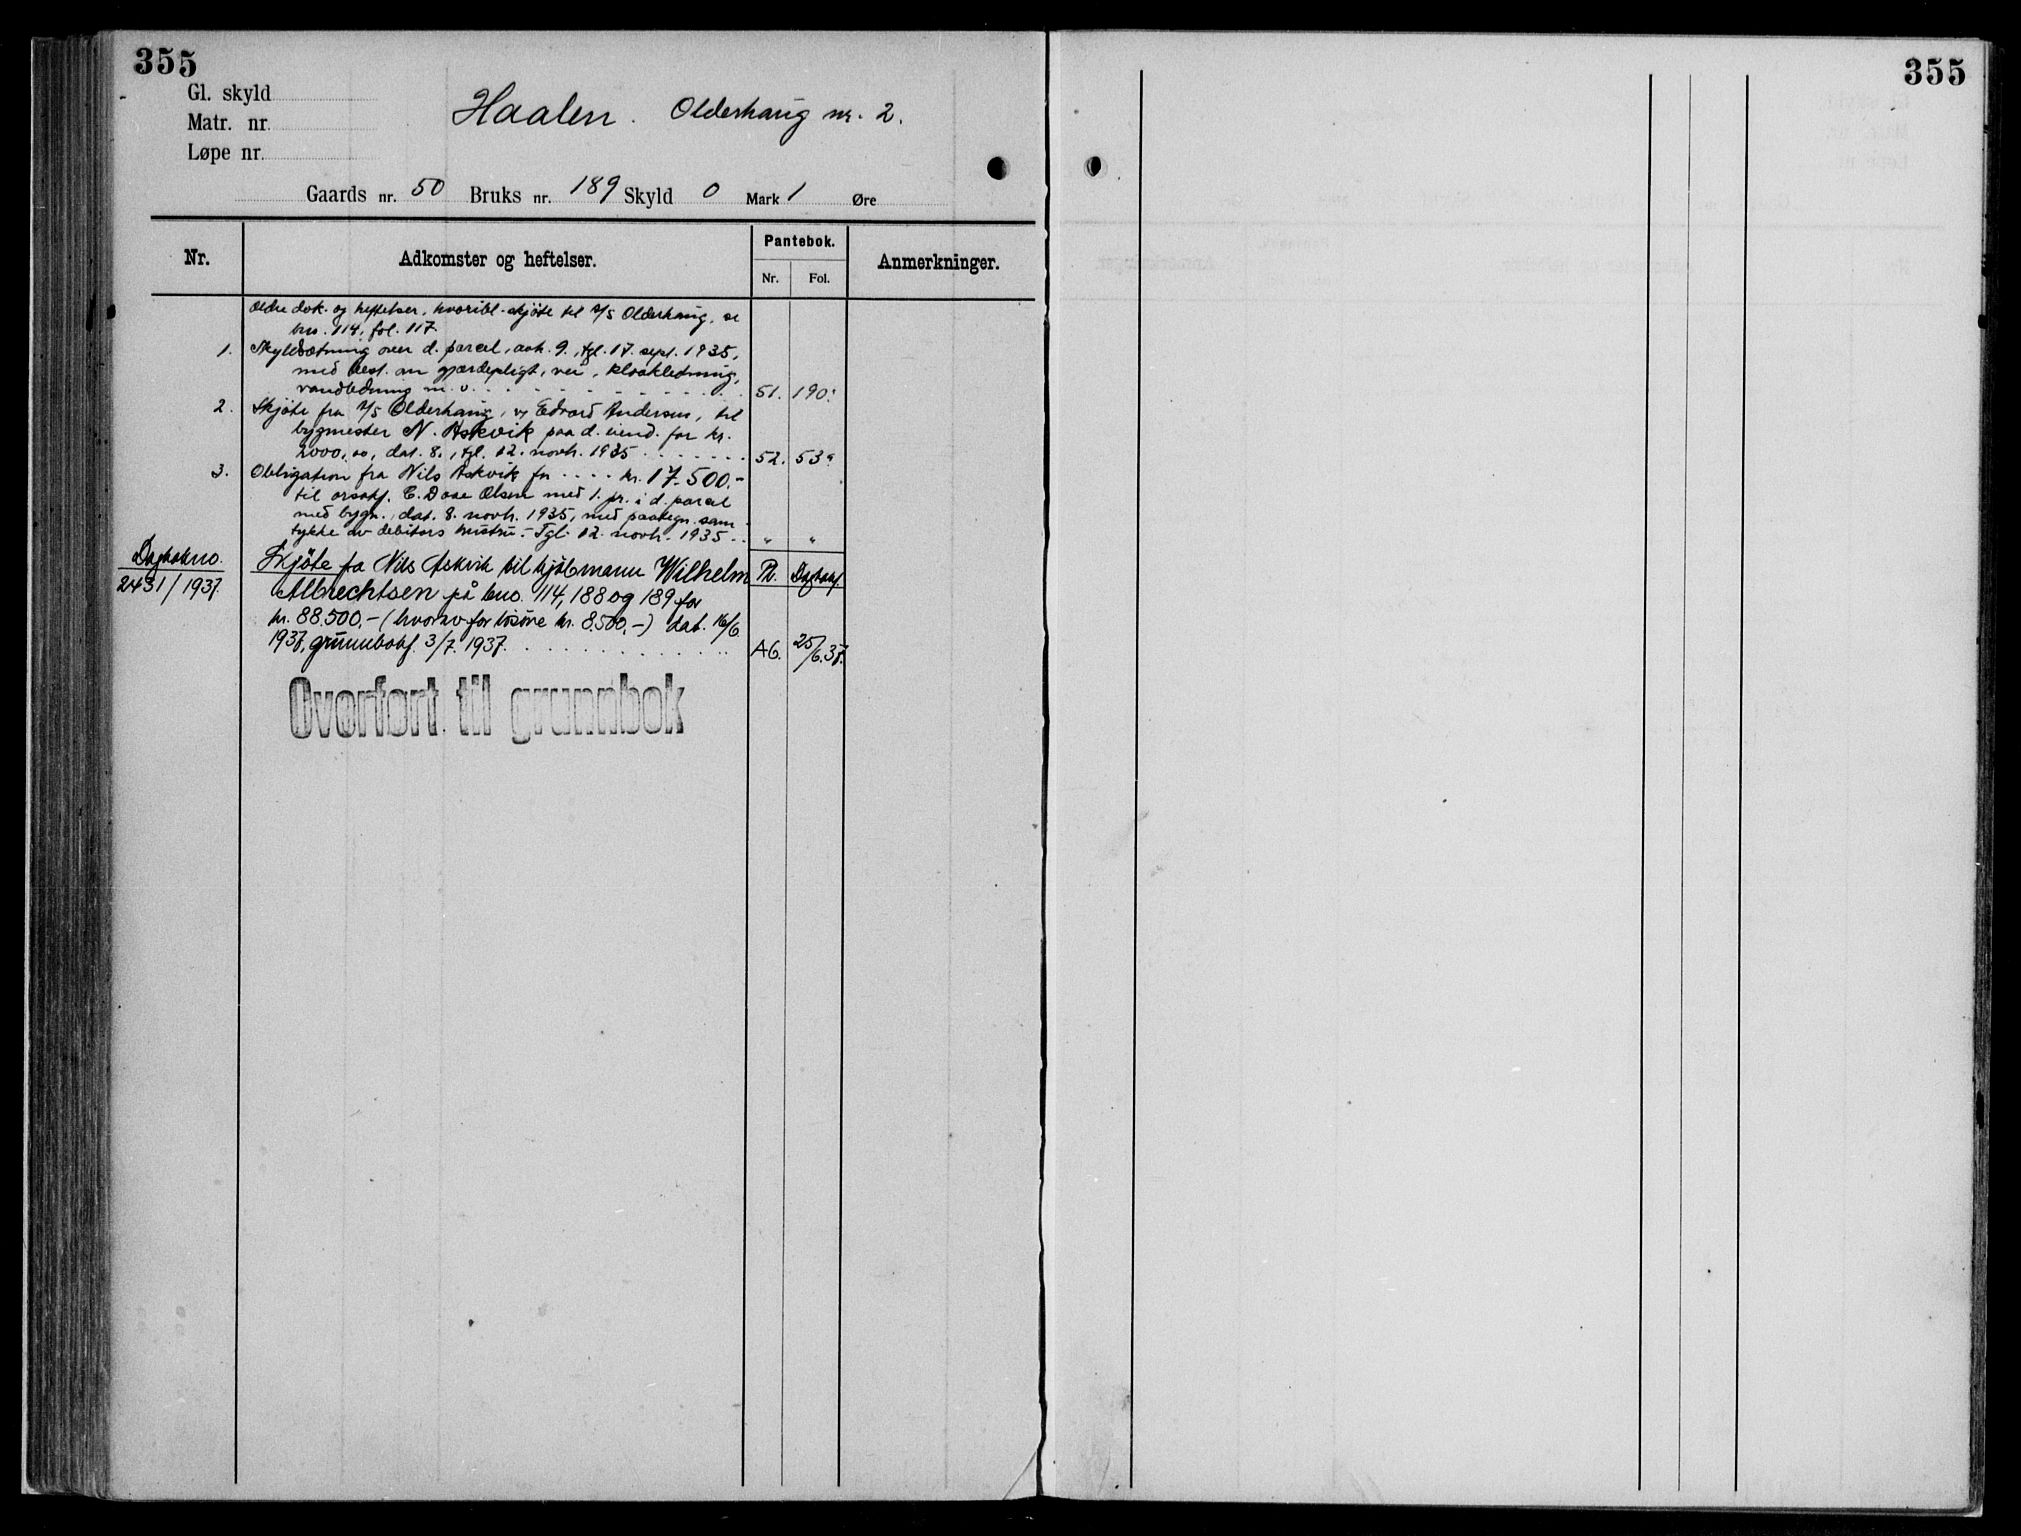 355
355
Gl. skyld
Matr. nr.
Løpe nr.
Haalen. Olderhaug nr. 2.
Gaards nr. 50 Bruks nr. 189 Skyld 0 Mark 1 Øre
Nr. Adkomster og heftelser. Pantebok. Anmerkninger.
Nr. Fol.
Ældre dok. og heftelser, hvoribl. skjøte til A/S Olderhaug, se
bno. 114, fol. 117.
1. Skyldsætning over d. parcel, avh. 9., tgl. 17. sept. 1935,
med best. om gjærdepligt, vei, kloakledning,
vandledning m. v. 51. 190.
2. Skjøte fra A/S Olderhaug, v/ Edvard Andersen, til
bygmester N. Askvik paa d. eiend. for kr.
2000,00, dat. 8., tgl. 12. novbr. 1935 52. 53.
3. Obligation fra Nils Askvik for kr. 17.500.-
til orsakf. C. Dose Olsen med 1. pr. i d. parcel
med bygn., dat. 8. novbr. 1935, med paategn. sam-
tykke av debitors hustru. - Tgl. 12. novbr. 1935 " "
Dagbokno. Skjöte fra Nils Askvik til kjöbmann Wilhelm Pb. Dagbokf.
2431/1937. Albrechtsen på bno. 114, 188 og 189 for
kr. 88.500,- (hvorav for lösöre kr. 8500,-) dat. 16/6
1937, grunnbokf. 3/7. 1937. A6. 25/6.37.
Overført til grunnbok